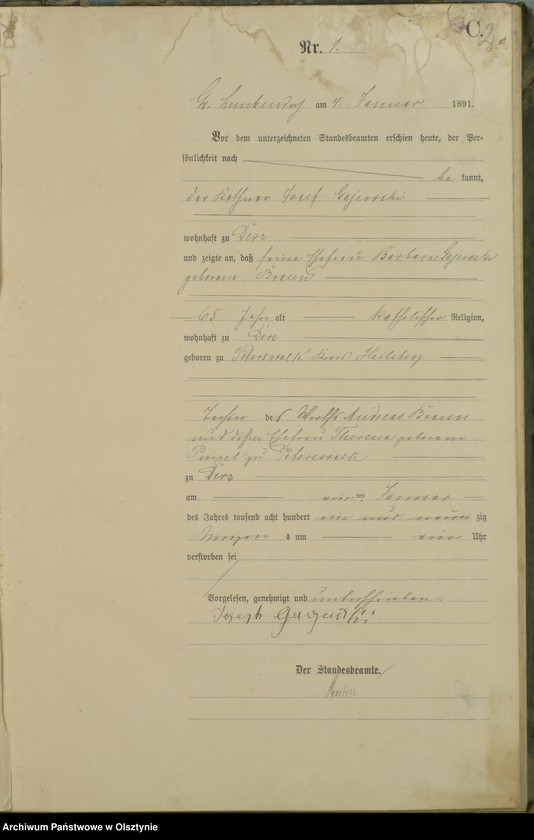 C.
Nr. 1.
am 4 Januar 1891.
Vor dem unterzeichneten Standesbeamten erschien heute, der Per-
sönlichkeit nach
be kannt,
der Käthner Josef Gajewski
wohnhaft zu Derz
und zeigte an, daß seine Ehefrau Barbara Gajewski
geborene Braun
65 Jahr alt katholischer Religion,
wohnhaft zu Derz
geboren zu Peterswalk Kreis Heilsberg
Tochter des Wirths Andreas Braun
und dessen Ehefrau Therese geborene
zu Peterswalk
zu Derz
am ten Januar
des Jahres tausend acht hundert ein und neun zig
Morgens um Uhr
verstorben sei
Vorgelesen, genehmigt und unterschrieben.
Joseph
Der Standesbeamte.
Archiwum Państwowe w Olsztynie